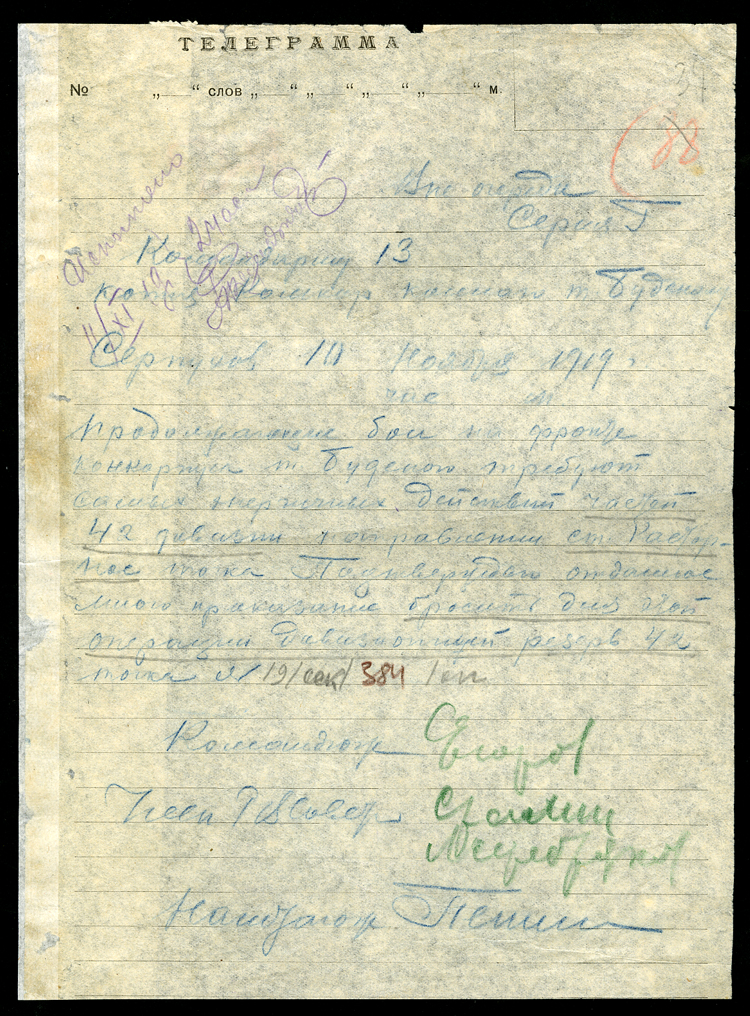 ТЕЛЕГРАММА
№ „ “ слов „ “ „ “ „ “ „ “ м.
34
(88
Исполнено
11/XI 19
2 часа
Вне очереди
Серия Г
Командарму 13
копия Комкор конного т Буденому
Серпухов 11 Ноября 1919 г
час м
Продолжающие бои на фронте
конкорпуса т. Буденого требуют
самых энергичных действий частей
42 дивизии направлении ст. Кастор-
ное точка Подтверждаю отданное
мною приказание бросить для этой
операции дивизионный резерв 42
точка № 19/сек/ 384 /оп
Командюж Егоров
Член РВСовета Сталин
Наштаюж Петин